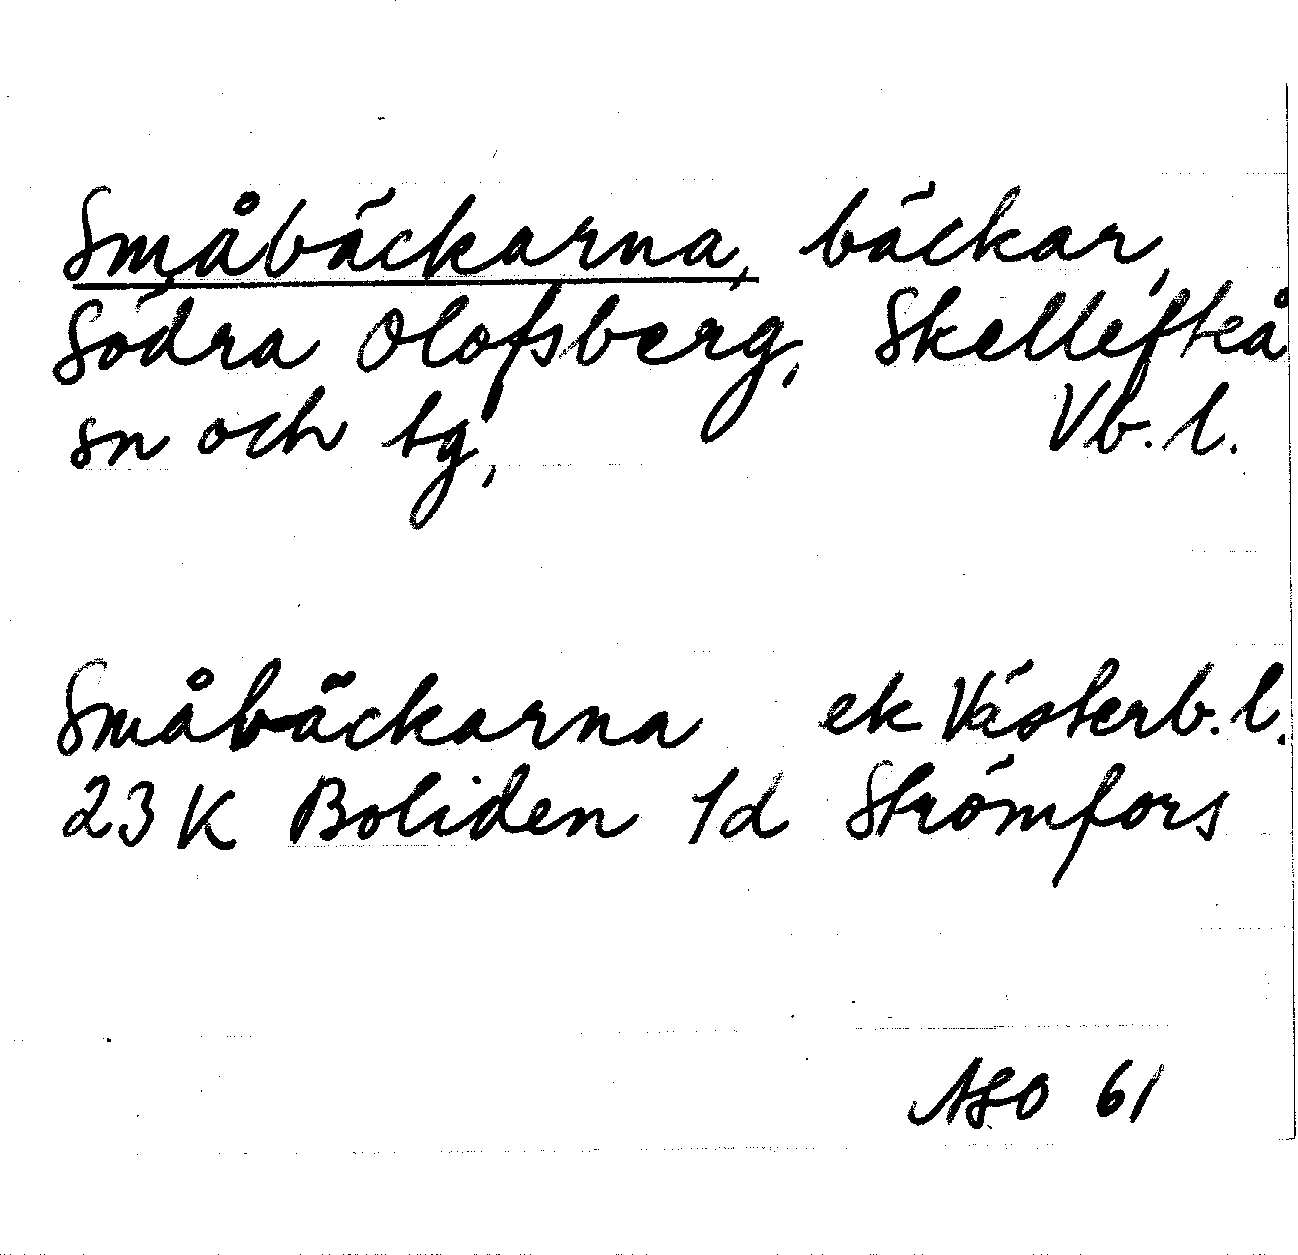 Småbäckarna, bäckar,
Södra Olofsberg, Skellefteå
sn och tg, Vb. l.
Småbäckarna ek Västerb. l.
23 K Boliden 1d Strömfors
ASO 61